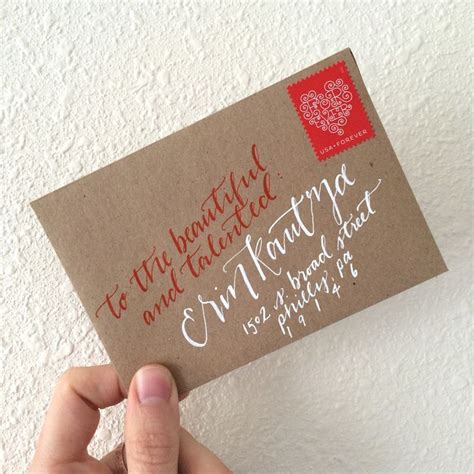 FOR
EVER
USA • FOREVER
to the beautiful
and talented:
Erin Kautza
1502 S. broad street
philly, pa
19146